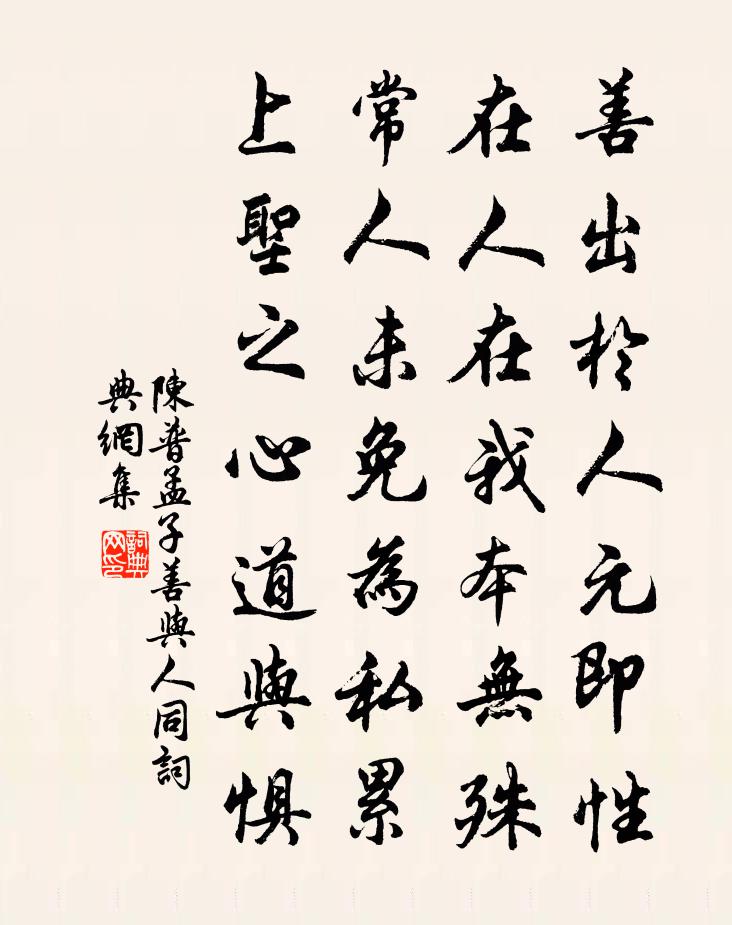 善出於人元即性
在人在我本無殊
常人未免為私累
上聖之心道與惧
陳普孟子善與人同詞
典網集
詞典
网印